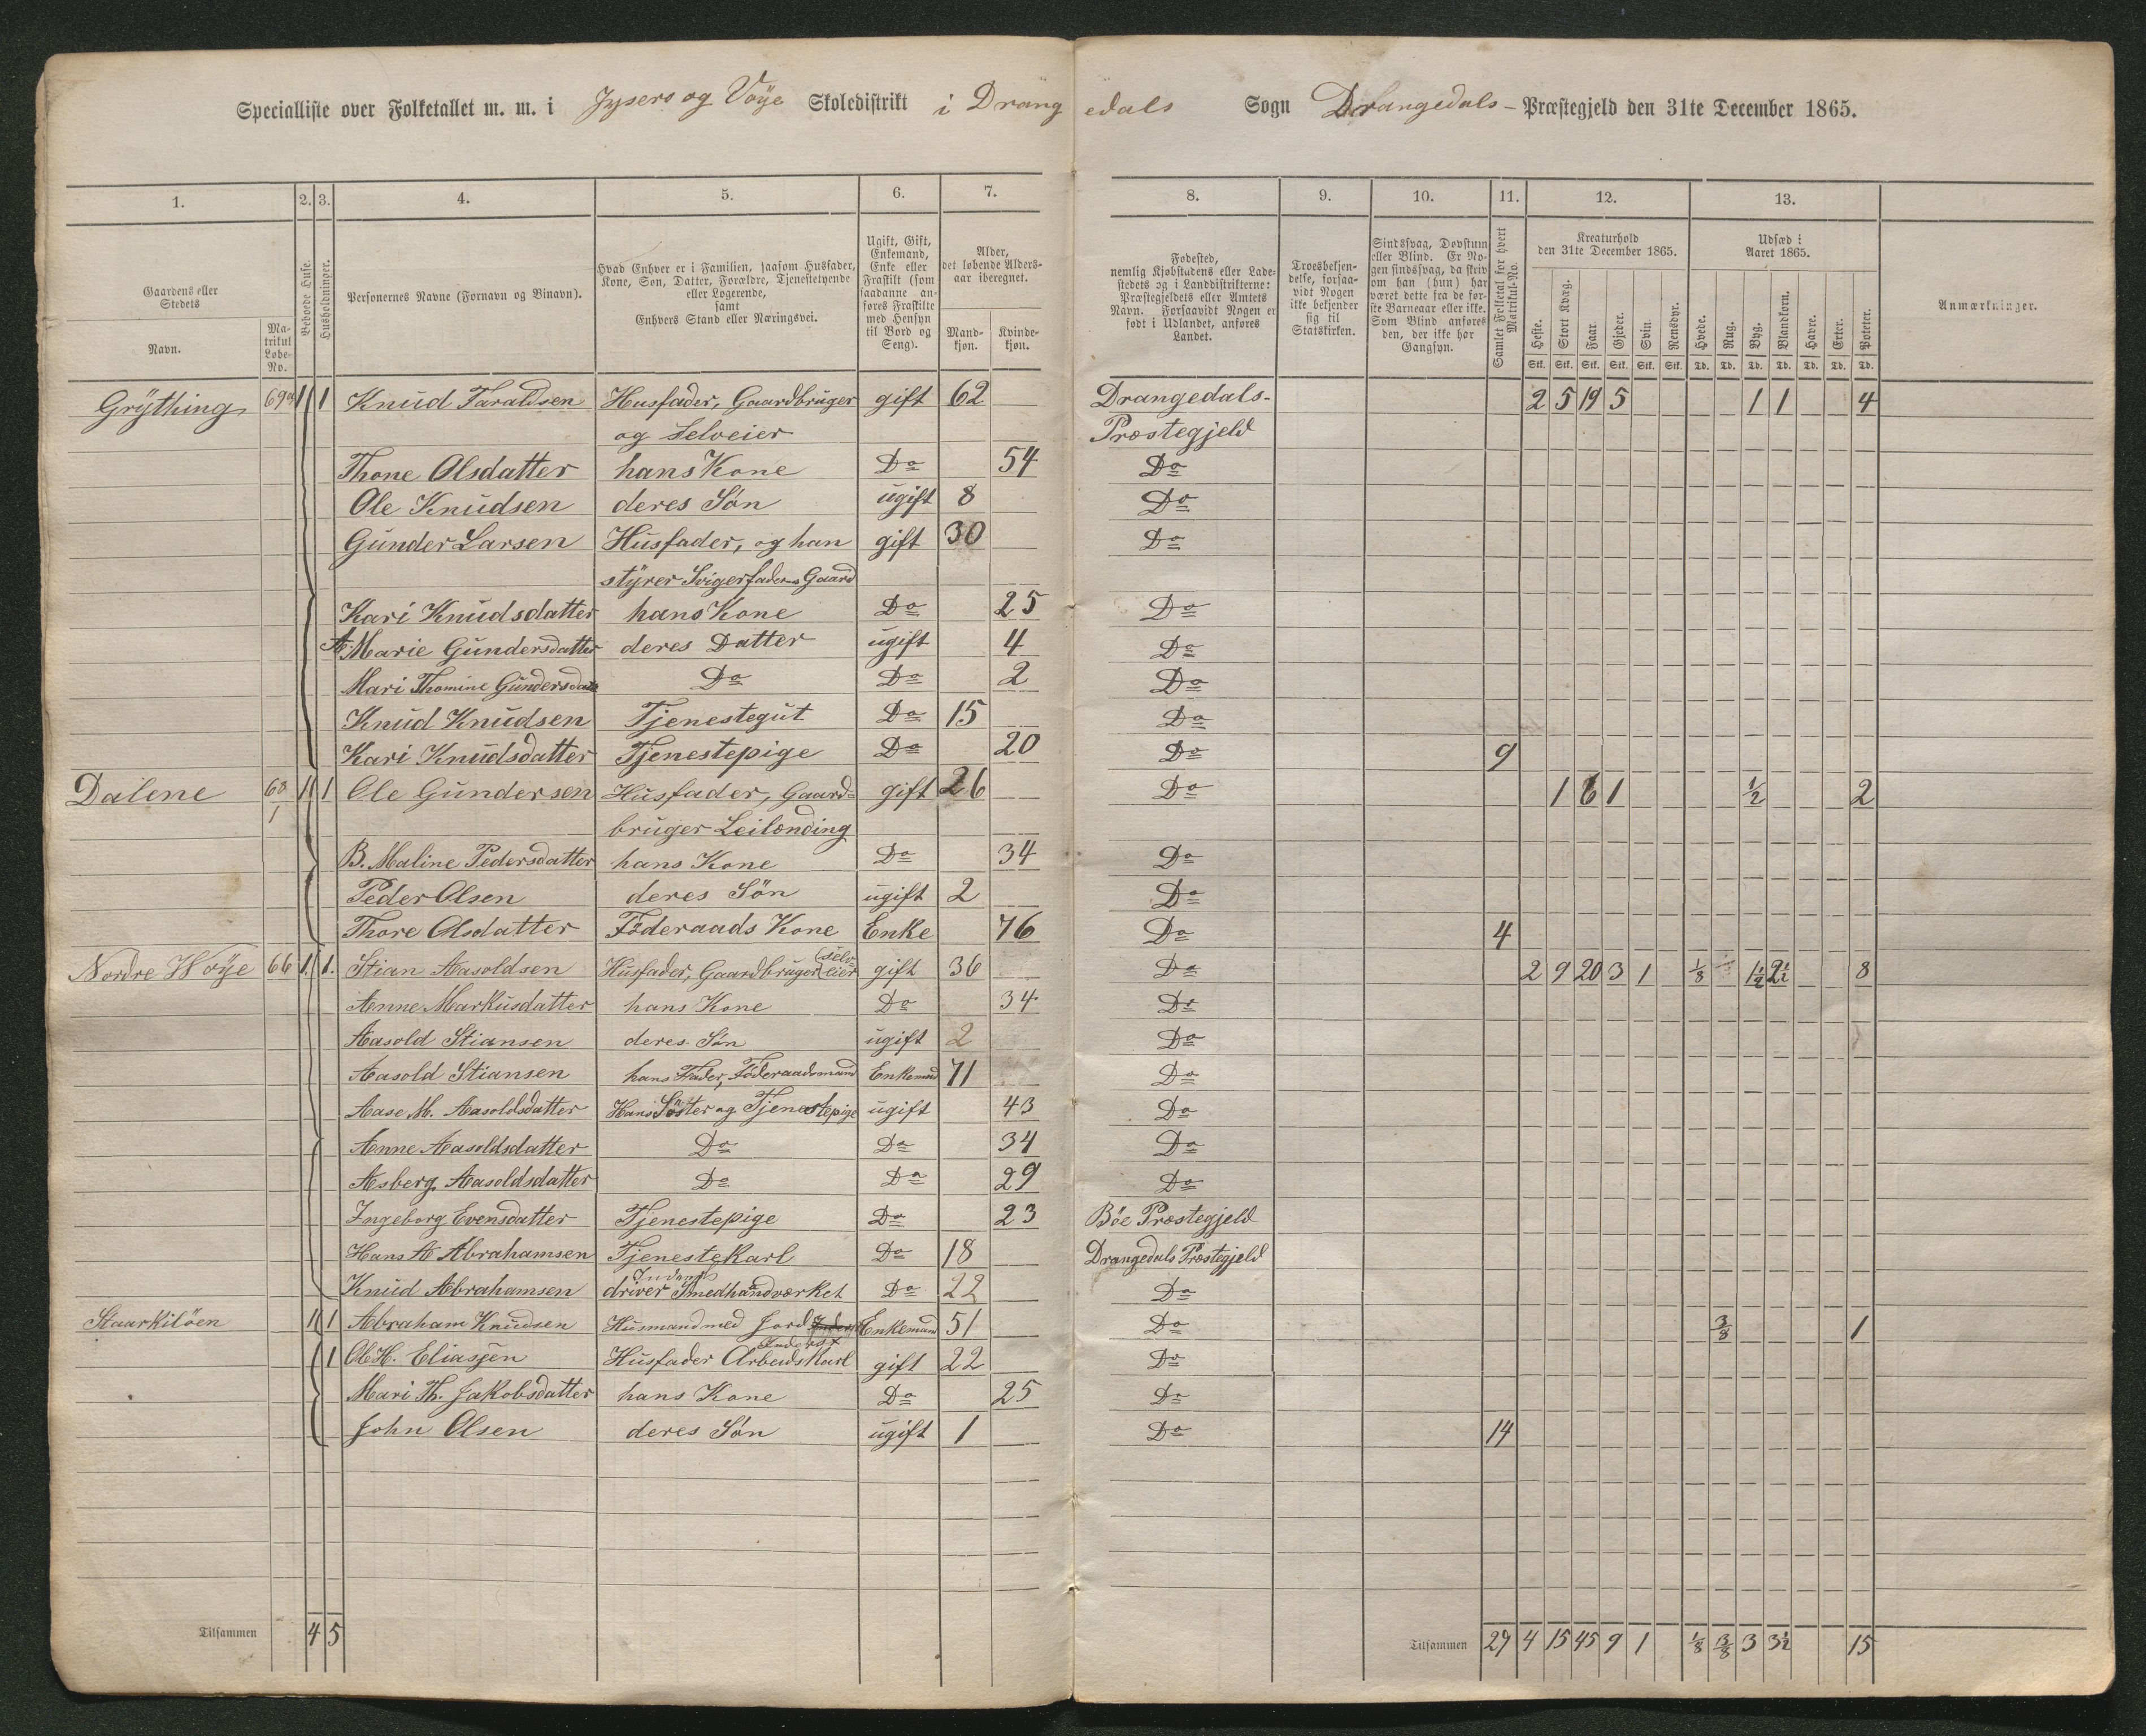 Specialliste over Folketallet m. m. i Jysero og Voije Skoledistrikt i Drangedals Sogn Drangedals- Præstegjeld den 31te December 1865.
1. 2. 3. 4. 5. 6. 7. 8. 9. 10. 11. 12. 13.
Gaardens eller Stedets Navn.
Matrikul Løbe-No.
Beboede Huse.
Husholdninger.
Personernes Navne (Fornavn og Binavn).
Hvad Enhver er i Familien, saasom Husfader, Kone, Søn, Datter, Forældre, Tjenestetyende eller Logerende, samt Enhvers Stand eller Næringsvei.
Ugift, Gift, Enkemand, Enke eller Fraskilt (som saadanne anføres Fraskilte med Hensyn til Bord og Seng).
Alder, det løbende Aldersaar iberegnet.
Mandkjøn. Kvindekjøn.
Fødested, nemlig Kjøbstadens eller Ladestedets og i Landdistrikterne: Præstegjeldets eller Amtets Navn. Forsaavidt Nogen er født i Udlandet, anføres Landet.
Troesbekjendelse, forsaavidt Nogen ikke bekjender sig til Statskirken.
Sindssvag, Døvstum eller Blind. Er Nogen sindssvag, da skriv om han (hun) har været dette fra de første Barneaar eller ikke. Som Blind anføres den, der ikke har Gangsyn.
Samlet Folketal for hvert Matrikul-No.
Kreaturhold den 31te December 1865.
Heste. Stort Kvæg. Faar. Gjeder. Svin. Rensdyr.
Udsæd i Aaret 1865.
Hvede. Rug. Byg. Blandkorn. Havre. Erter. Poteter.
Anmærkninger.
Stk. Stk. Stk. Stk. Stk. Stk. Td. Td. Td. Td. Td. Td. Td.
Grÿthing 69 1 1 Knud Taraldsen Husfader, Gaardbruger gift 62 Drangedals- 2 5 19 5 1 1 4
og Selveier Præstegjeld
Thone Olsdatter hans Kone Do 54 Do
Ole Knudsen deres Sön ugift 8 Do
Gunder Larsen Husfader, og han gift 30 Do
styrer Svigerfaders Gaard
Kari Knudsdatter hans Kone Do 25 Do
A Marie Gundersdatter deres Datter ugift 4 Do
Mari Thomine Gundersdatter Do Do 2 Do
Knud Knudsen Tjenestegut Do 15 Do
Kari Knudsdatter Tjenestepige Do 20 Do 9
Dalene 68 1 1 Ole Gundersen Husfader, Gaard= gift 26 Do 1 6 1 ½ 2
1 bruger Leilænding
B. Maline Pedersdatter hans Kone Do 34 Do
Peder Olsen deres Sön ugift 2 Do
Thore Olsdatter Föderaads Kone Enke 76 Do 4
Nordre Woije 66 1 1. Stian Aasoldsen Husfader, Gaardbruger selveier gift 36 Do 2 9 20 3 1 1/8 1½ 2½ 8
Anne Markusdatter hans Kone Do 34 Do
Aasold Stiansen deres Søn ugift 2 Do
Aasold Stiansen hans Fader, Föderaadsmand Enkemand 71 Do
Aase M. Aasoldsdatter Hans Söster og Tjenestepige ugift 43 Do
Anne Aasoldsdatter Do Do 34 Do
Asberg. Aasoldsdatter Do Do 29 Do
Ingeborg Evensdatter Tjenestepige Do 23 Böe Præstegjeld
Hans A Abrahamsen TjenesteKarl Do 18 Drangedals Præstegjeld
Inderst
Knud Abrahamsen driver Smedhandværket Do 22 Do
Staarkilöen 1 1 Abraham Knudsen Husmand med Jord Enkemand 51 Do 3/8 1
Inderst
1 Ole H. Eliasjen Husfader ArbeidsKarl gift 22 Do
Mari Th. Jakobsdatter hans Kone Do 25 Do
John Olsen deres Søn ugift 1 Do 14
Tilsammen 4 5 Tilsammen 27 4 15 45 9 1 1/8 3/8 3 3½ 15